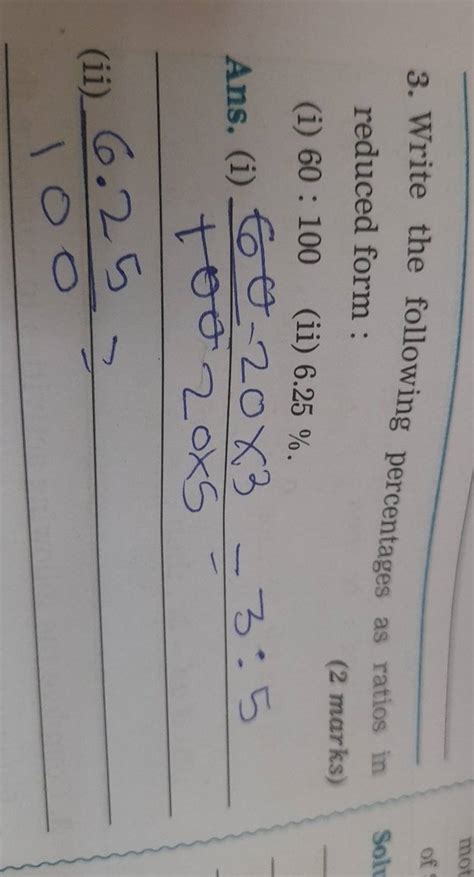 3. Write the following percentages as ratios in
reduced form : (2 marks)
(i) 60 : 100 (ii) 6.25 %.
Ans. (i) 60 - 20×3 - 3:5
100 20×5 -
(ii) 6.25 =
100
mot
of
Solu